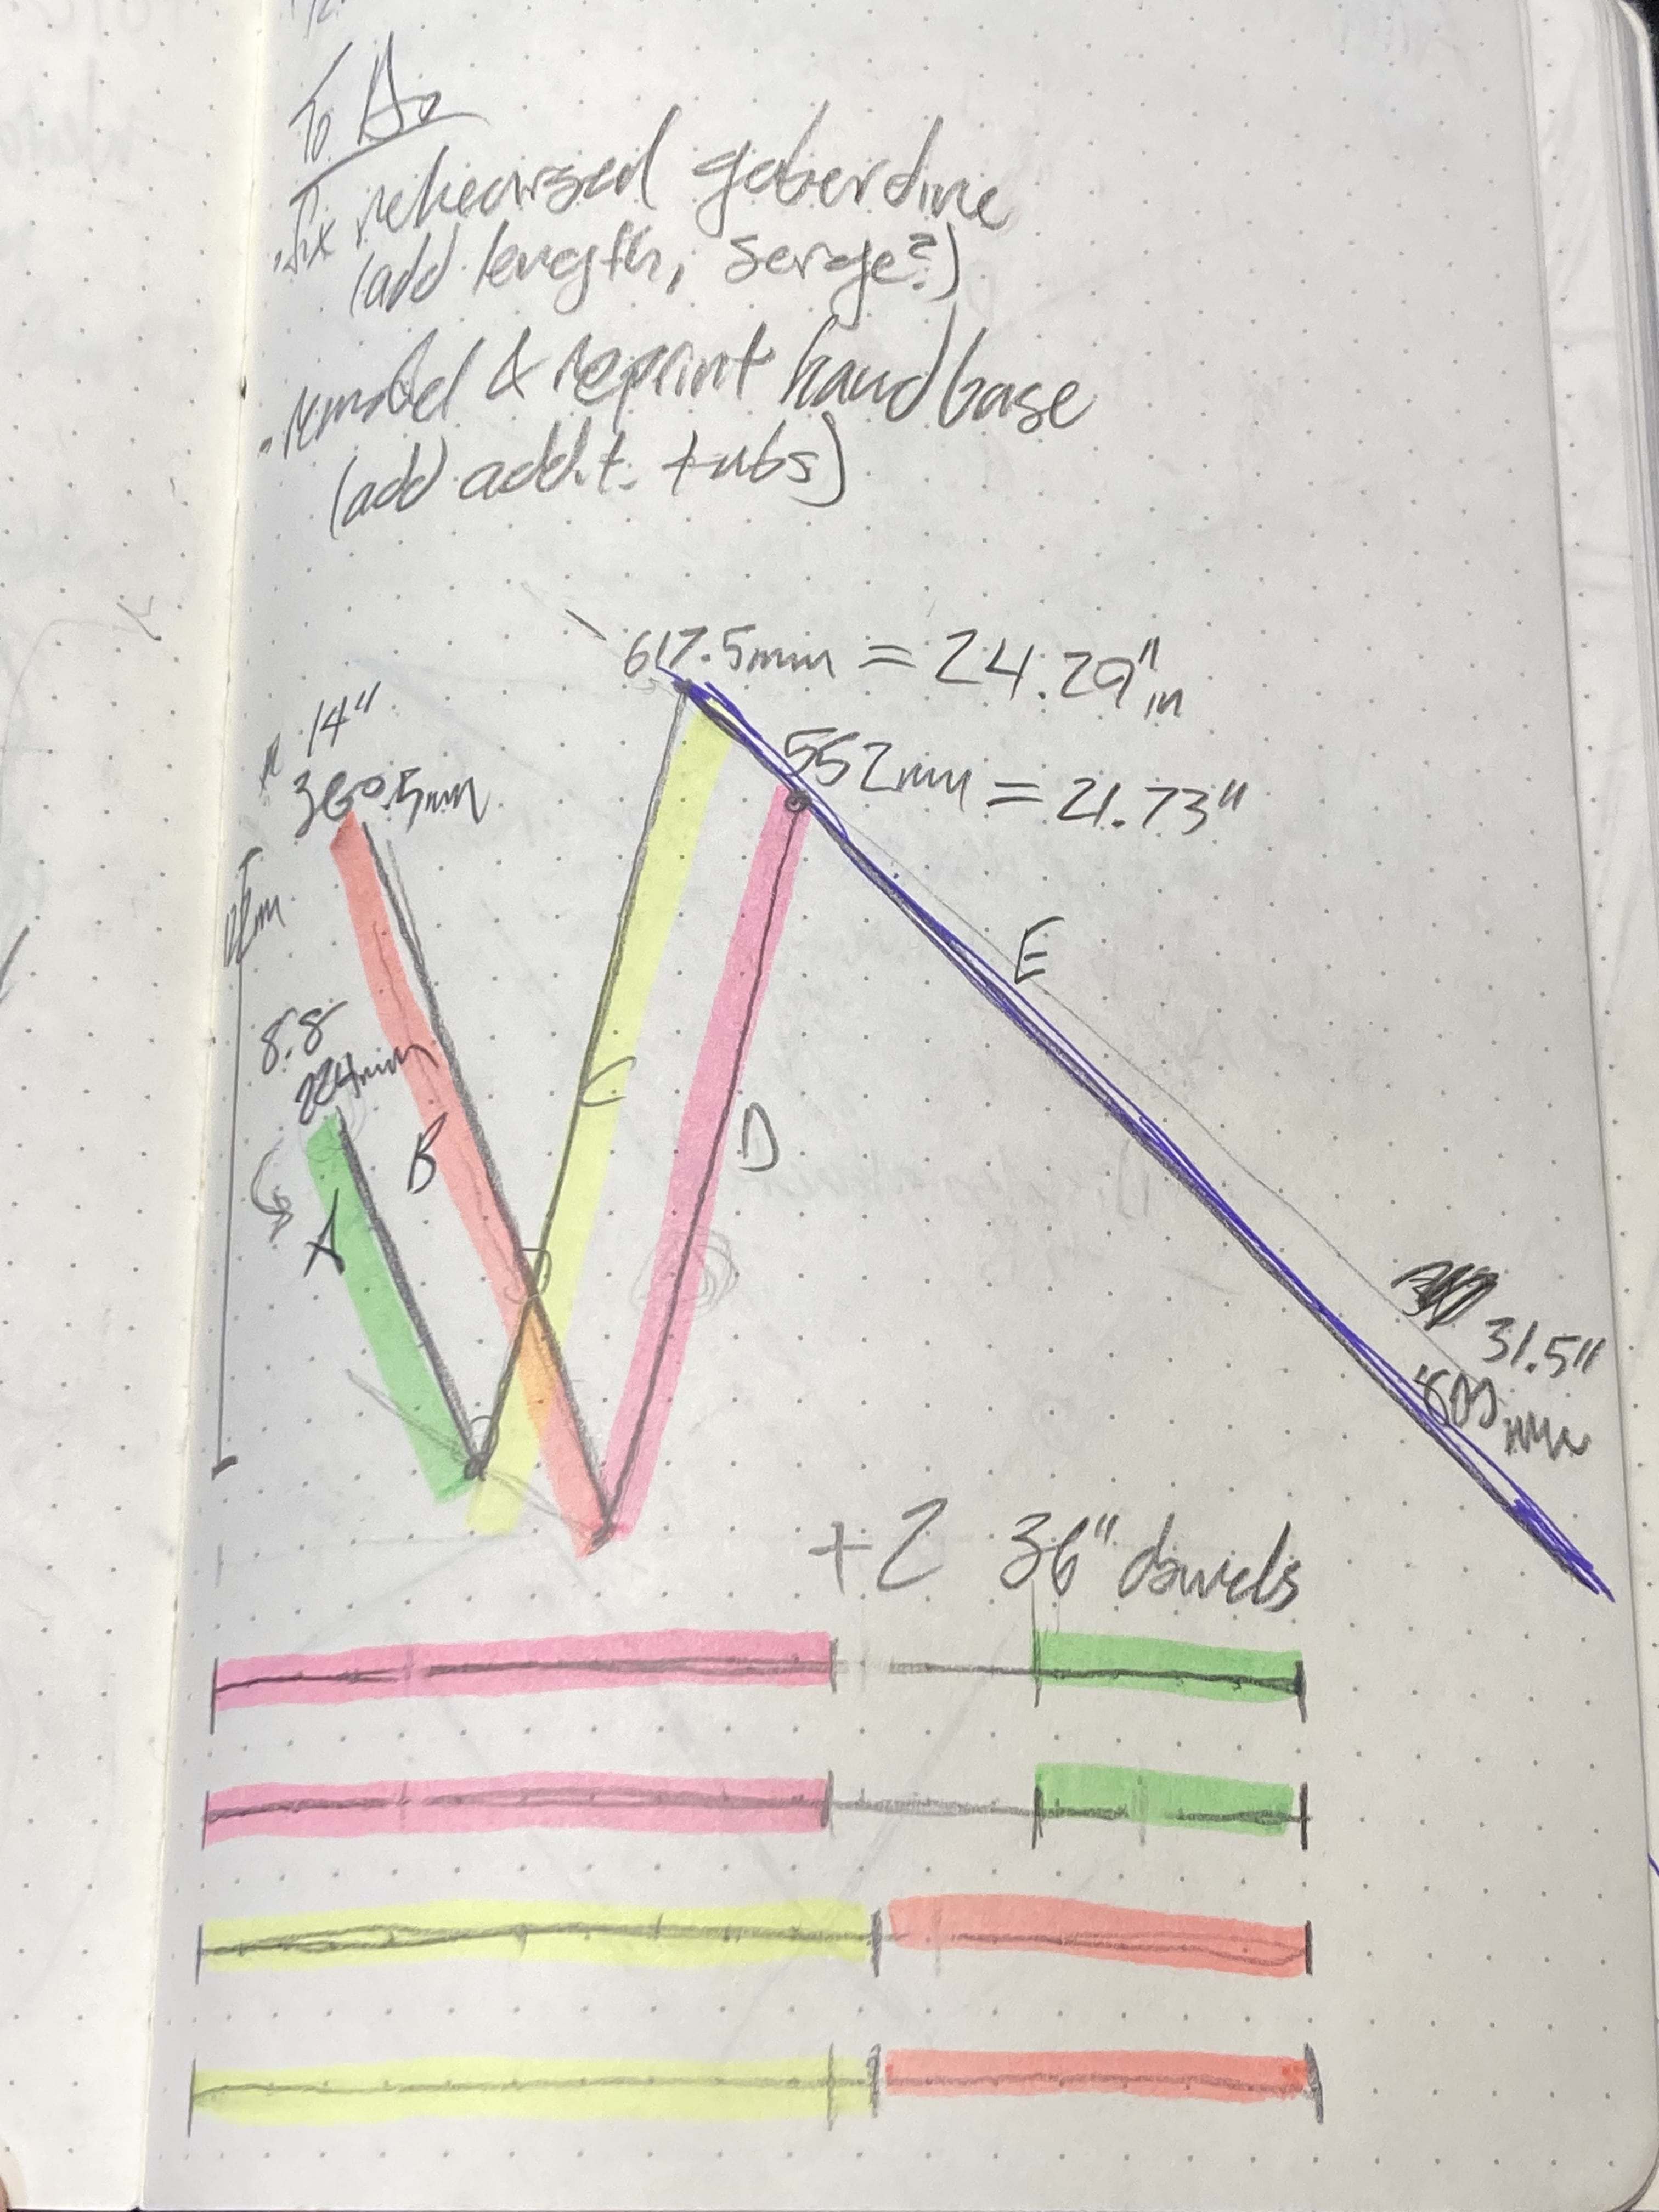 To Do
rehearsed gaberdine
(add length, serge?)
· remodel & reprint hand base
(add addit. tubs)
617.5mm = 24.29"in
14"
360.5mm
552mm = 21.73"
E
8.8
224mm
C
B
D
A
31.5"
800
mm
+2 36" dowels